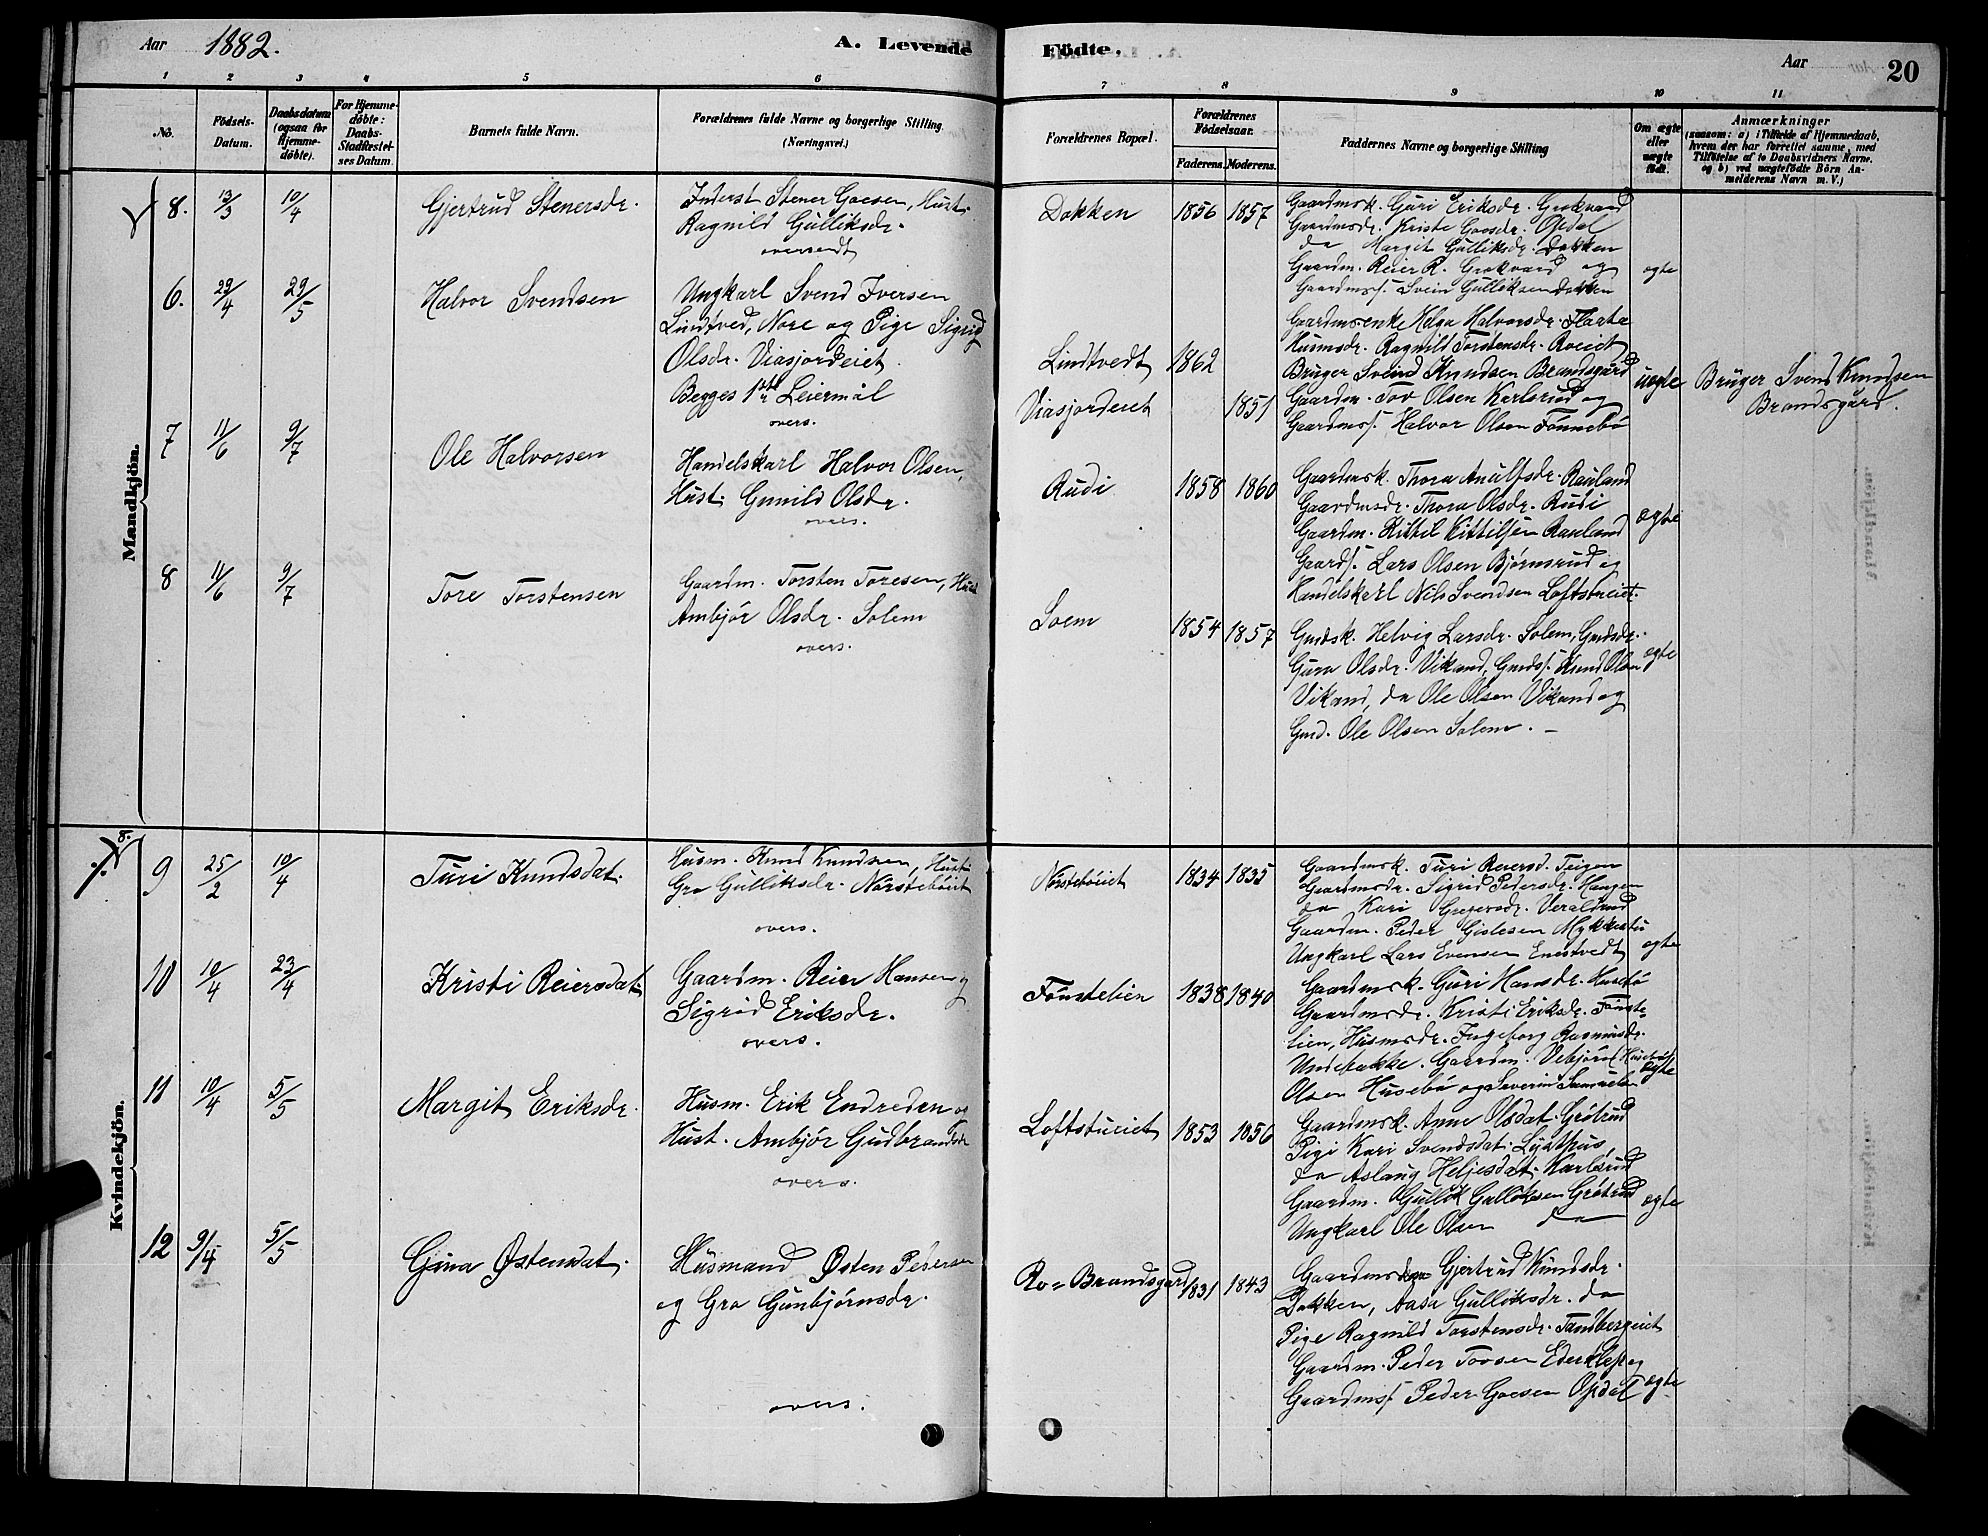 Aar 1882.
A. Levende
Födte.
Aar
20
1 2 3 4 5 6
7 8 9 10 11
No.
Födsels-Datum.
Daabsdatum (ogsaa for Hjemmedöbte).
For Hjemmedöbte: Daabs-Stadfæstelses Datum.
Barnets fulde Navn.
Forældrenes fulde Navne og borgerlige Stilling. (Næringsvei.)
Forældrenes Bopæl.
Forældrenes Födselsaar.
Faderens. Moderens.
Faddernes Navne og borgerlige Stilling
Om ægte eller uægte födt.
Anmærkninger
(saasom: a) i Tilfælde af Hjemmedaab, hvem der har forrettet samme, med Tilföielse af to Daabsvidners Navne, og b) ved uægtefödte Börn Anmelderens Navn m. V.)
Mandkjön.
8. 13/3 10/4 Gjertrud Stenersdr.
Inderst Stener Goesen, Hust.
Ragnild Gulliksdr.
oversendt
Dokken 1856 1857
Gaardmsk. Guri Eriksdr. Grokvard
Gaardmsdr. Kriste Goosdr. Opdal
do Margit Gulliksdr. Dokken
Gaardm. Reier R. Grokvard og
Gaardms/. Svein Gulliksen Dokken
ægte
6. 29/4 29/5 Halvor Svendsen
Ungkarl Svend Iversen
Lindtved, Nore og Pige Sigrid
Olsdr. Viasjordeiet
Begges 1ste Leiermål
overs.
Lindtvedt 1862
Viasjordeiet 1851
Gaardmsenke Helga Halvorsdr. Flaata
Husmsdr. Ragnild Torstensdr. Roeiet
Bruger Svend Knudsen Brandsgård
Gaardm. Tov Olsen Karlsrud og
Gaardms/. Halvor Olsen Fönnebö
uægte
Bruger Svend Knudsen
Brandsgård.
7 11/6 9/7 Ole Halvorsen
Handelskarl Halvor Olsen,
Hust. Gunild Olsdr.
overs.
Rudi 1858 1860
Gaardmsk. Thora Anulfsdr. Rauland
Gaardmsdr. Thora Olsdr. Rudi
Gaardm. Kittil Kittilsen Rauland
Gaards/. Lars Olsen Bjørnsrud og
Handelskarl Nils Svendsen Loftstueiet.
ægte
8 11/6 9/7 Tore Torstensen
Gaardm. Torsten Toresen, Hust
Ambjör Olsdr. Solem
overs.
Soem 1854 1857
Gmdsk. Helvig Larsdr. Solem, Gmdsdr.
Guro Olsdr. Vikand, Gmds/. Knud Olsen
Vikand, do Ole Olsen Vikand og
Gmd. Ole Olsen Solem. —
ægte
Kvindekjön.
8.
9 25/2 10/4 Turi Knudsdat.
Husm. Knud Knudsen, Hust.
Gro Gulliksdr. Nörsteböiet
overs.
Nörsteböiet 1834 1835
Gaardmsk. Turi Reiersd. Teigen
Gaardmsdr. Sigrid Pedersdr. Haugen
do Kari Gregersdr. Veraldrud
Gaardm. Peder Gislesen Mykkestu
Ungkarl Lars Evensen Enestvedt
ægte
10 10/4 23/4 Kristi Reiersdat.
Gaardm. Reier Hansen og
Sigrid Eriksdr.
overs.
Fönstelien 1838 1840
Gaardmsk. Guri Hansdr. Husebö
Gaardmsdr. Kristi Eriksdr. Fönste-
lien, Husmsdr. Ingeborg Rasmusdr.
Undebakke. Gaardm. Vebjörn
Olsen Husebö og Severin Samuelsen
ægte
11 10/4 5/5 Margit Eriksdr.
Husm. Erik Endresen og
Hust. Ambjör Gudbrandsdr
overs.
Loftstueiet 1853 1856
Gaardmsk. Anne Olsdat. Grötrud
Pige Kari Svendsdat. Lysthus
do Aslaug Heljesdat. Karlsrud
Gaardm. Gullik Gulliksen Grötrud
Ungkarl Ole Olsen do
ægte
12 9/4 5/5 Gina Østensdat.
Husmand Østen Pedersen
og Gro Gunbjörnsdr.
overs.
Ro=Brandsgard 1831 1843
Gaardmskone Gjertrud Knudsdr.
Dokken, Aasa Gulliksdr. do
Pige Ragnild Torstensdr. Tandbergeiet
Gaardm. Peder Toosen Ederklep og
Gaardms/. Peder Goesen Opdal
ægte